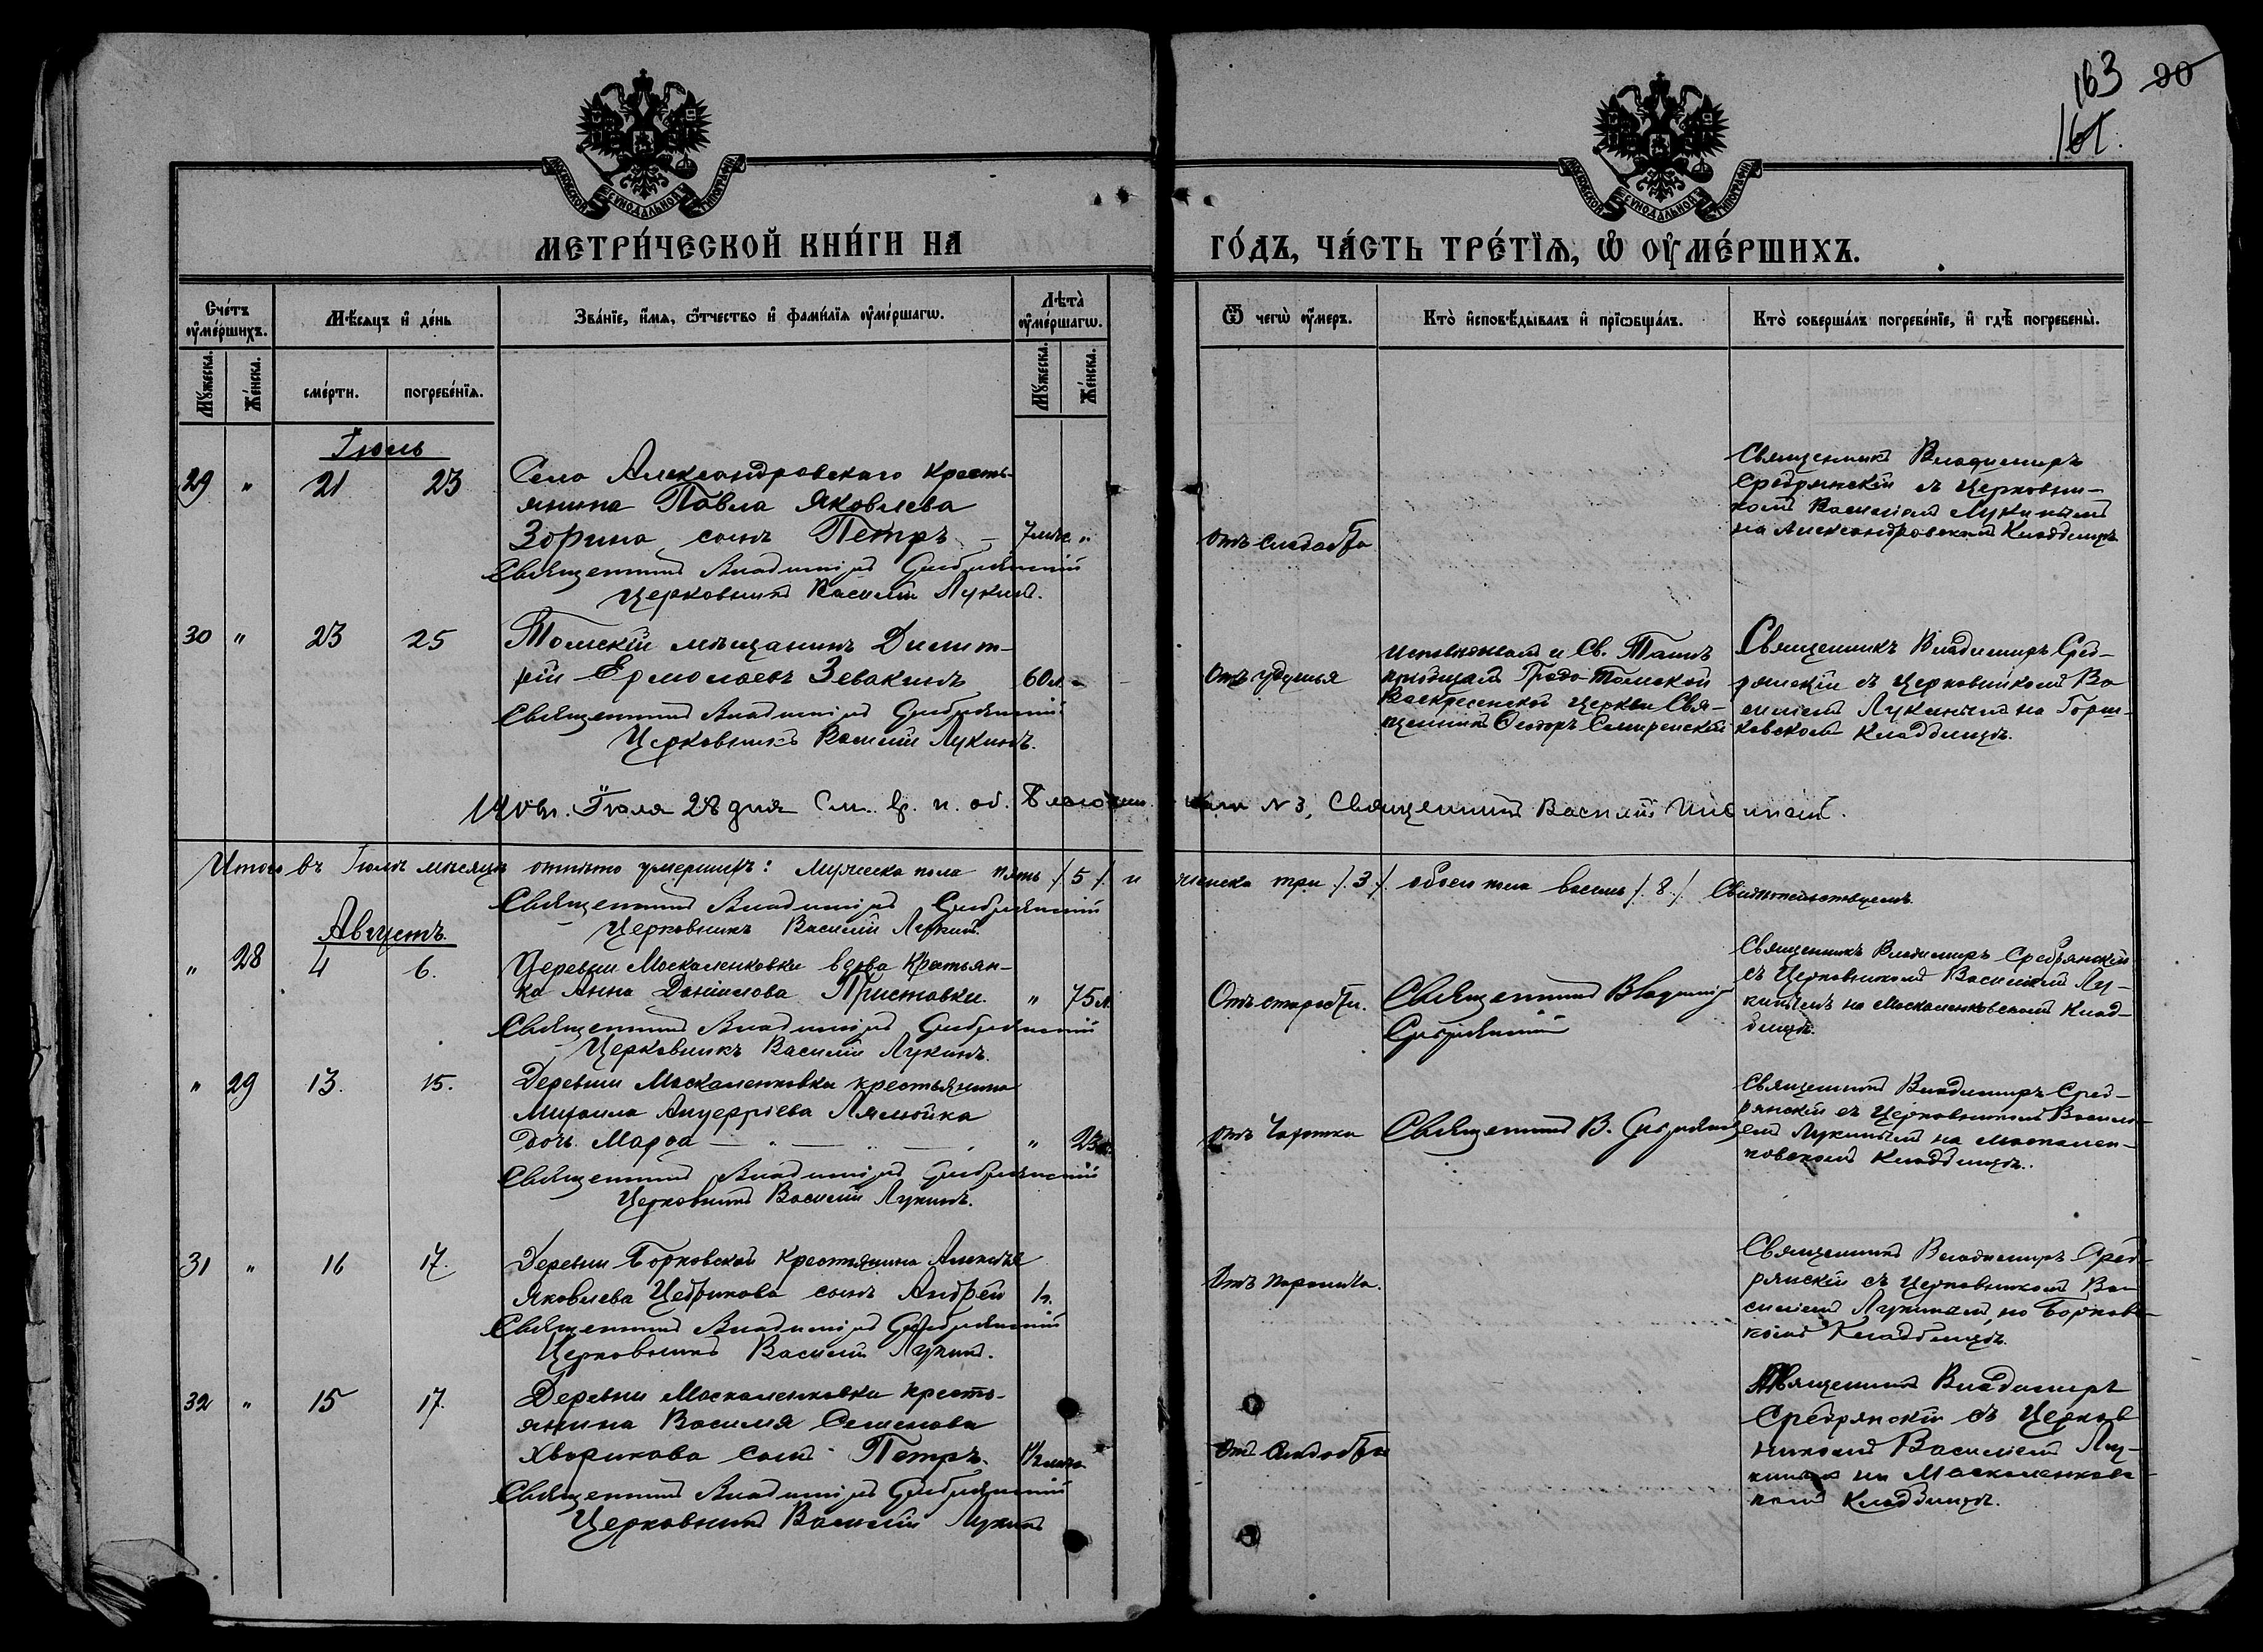 163 90
161.
МОСКОВСКОЙ СѴНОДАЛЬНОЙ ТИПОГРАФІИ
МОСКОВСКОЙ СѴНОДАЛЬНОЙ ТИПОГРАФІИ
МЕТРИ́ЧЕСКОЙ КНИ́ГИ НА
ГО́ДЪ, ЧА́СТЬ ТРЕ́ТЇѦ, Ѡ҆ ОУ҆МЕ́РШИХЪ.
Сче́тъ оу҆ме́ршихъ.
Мꙋ́жеска.
Же́нска.
Мѣ́сяцъ и҆ де́нь
сме́рти.
погребе́нїя.
Зва́нїе, и҆́мя, ѻ҆́тчество и҆ фами́лїя оу҆ме́ршагѡ.
Лѣта̀ оу҆ме́ршагѡ.
Мꙋ́жеска.
Же́нска.
Ѿ чегѡ̀ оу҆́меръ.
Кто̀ и҆сповѣ́дывалъ и҆ прїѡбща́лъ.
Кто̀ соверша́лъ погребе́нїе, и҆ гдѣ̀ погребены̀.
Іюль
29 " 21 23 Села Александровскаго кресть-
янина Павла Яковлева
Зорина сынъ Петръ — 7 мѣс. "
Священникъ Владиміръ Сребрянскій
Церковникъ Василій Лукинъ.
Отъ слабости
Священникъ Владимиръ
Сребрянскій съ Церковни-
комъ Василіемъ Лукинымъ
на Александровскомъ Кладбищѣ
30 " 23 25 Томскій мѣщанинъ Димит-
рій Ермолаевъ Зевакинъ 60 л. -
Священникъ Владиміръ Сребрянскій
Церковникъ Василій Лукинъ.
Отъ удушья
Исповѣдывалъ и Св. Таинъ
пріобщалъ Градо Томской
Воскресенской церкви Свя-
щенникъ Ѳеодоръ Смиренскій
Священникъ Владимиръ Среб-
рянскій съ Церковникомъ Ва
силіемъ Лукинымъ на Горш-
ковскомъ Кладбищѣ.
Іюля 28 дня См. в. и. об. Благочин.
N 3, Священникъ Василій
Итого въ Іюлѣ мѣсяцѣ отпѣто умершихъ: Мужеска пола пять /5/. и
женска три /.3./. обоего пола восемь /.8./. Свидѣтельствуемъ.
Священникъ Владиміръ Сребрянскій
Церковникъ Василій Лукинъ.
Августъ.
" 28 4 6. Деревни Москаленковки вдова крестьян-
ка Анна Даніилова Приставки. " 75 л.
Священникъ Владиміръ Сребрянскій
Церковникъ Василій Лукинъ.
Отъ старости.
Священникъ Владиміръ
Сребрянскій
Священникъ Владимиръ Сребрянскій
съ Церковникомъ Василіемъ Лу-
кинымъ на Москаленковскомъ Клад-
бищѣ.
" 29 13. 15. Деревни Москаленковки крестьянина
Михаила Лялюйка
дочь Марѳа — " — " 23
Священникъ Владиміръ Сребрянскій
Церковникъ Василій Лукинъ.
Отъ Чахотки
Священникъ В. Сребрянскій
Священникъ Владимиръ Среб-
рянскій съ Церковникомъ Васили-
емъ Лукинымъ на Москален-
ковскомъ Кладбищѣ.
31 " 16 17. Деревни Борковской крестьянина Алексѣя
Яковлева Цебрикова сынъ Андрей 1 г.
Священникъ Владиміръ Сребрянскій
Церковникъ Василій Лукинъ.
Отъ поноса.
Священникъ Владимиръ Среб-
рянскій съ Церковникомъ Ва
силіемъ Лукинымъ на Борковс-
комъ Кладбищѣ.
32 " 15 17. Деревни Москаленковки кресть-
янина Василія Семенова
Хворикова сынъ Петръ. 1½ мѣс.
Священникъ Владиміръ Сребрянскій
Церковникъ Василій Лукинъ
Отъ Слабости
Священникъ Владимиръ
Сребрянскій съ Церков
никомъ Василіемъ Лу-
кинымъ на Москаленковс-
комъ Кладбищѣ.